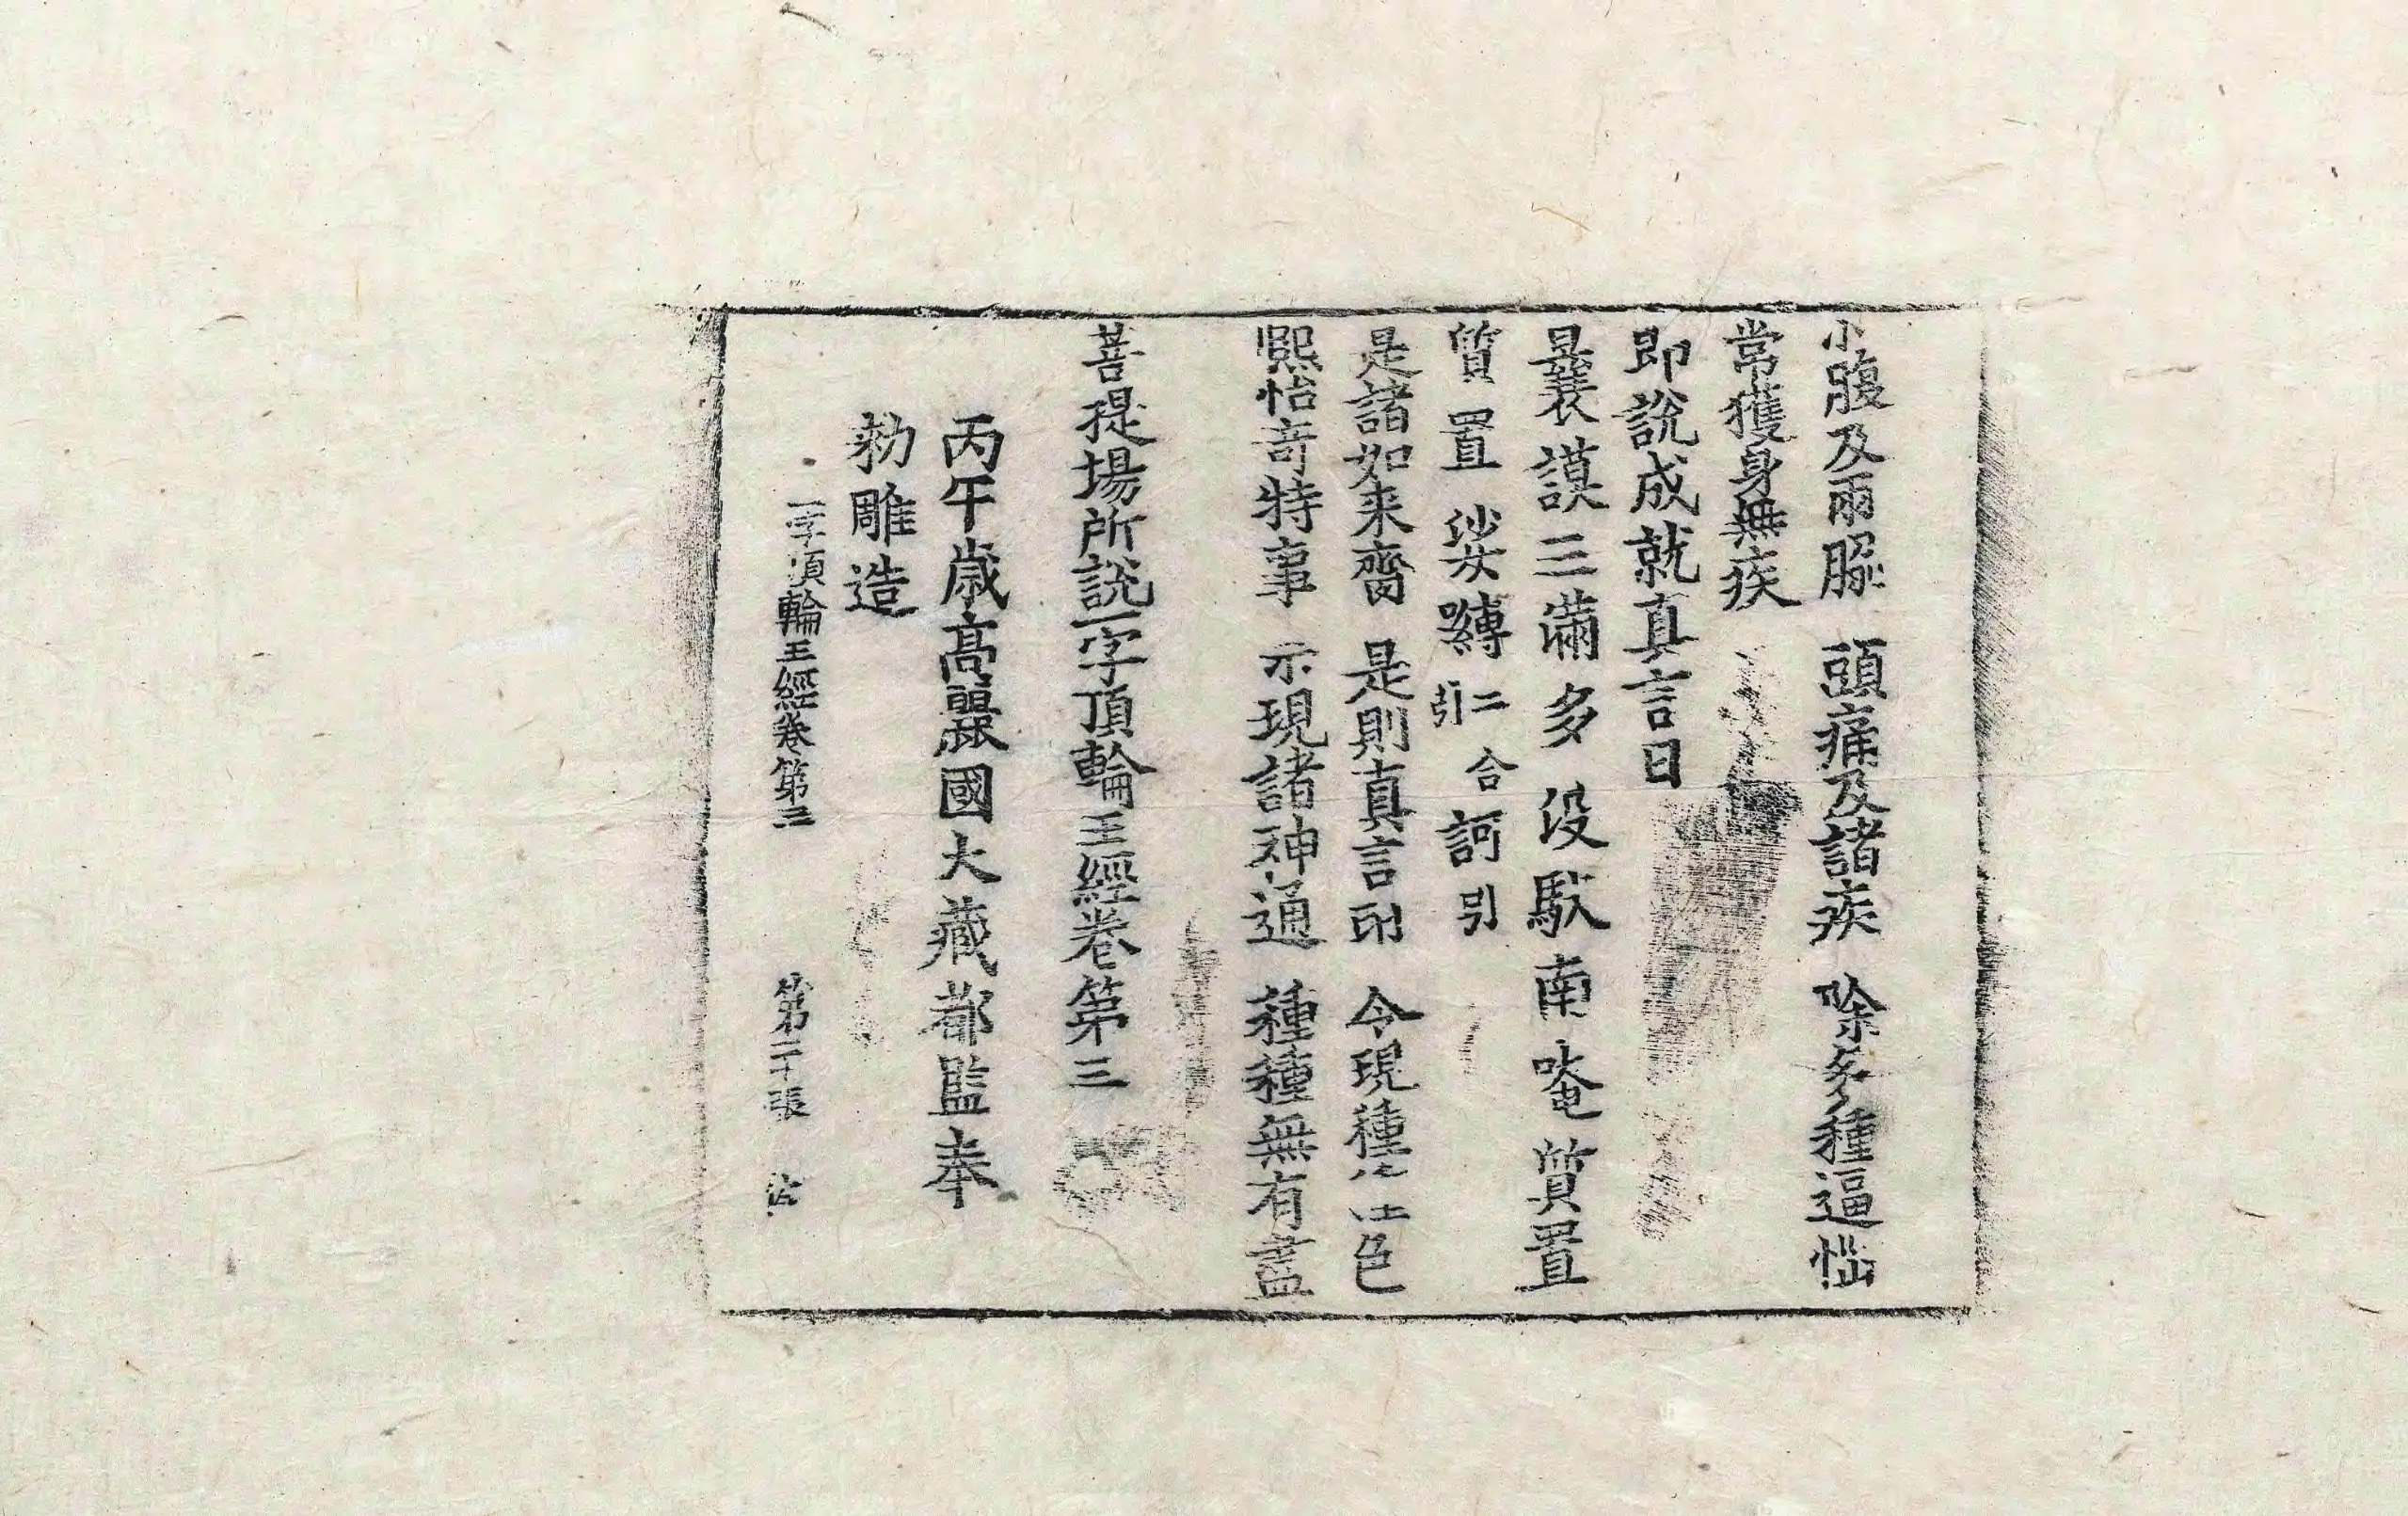 小腹及兩脇 頭痛及諸疾 除多種逼惱
常獲身無疾
即說成就真言曰
曩謨三滿多 没馱南唵質置
質置 娑嚩二合引 訶引
是諸如来齋 是則真言印 令現種 色
熙怡奇特事 示現諸神通 種種無有盡
菩提場所說一字頂輪王經卷第三
丙午歲高麗國大藏都監奉
勑雕造
一字頂輪王經卷第三 第二十張